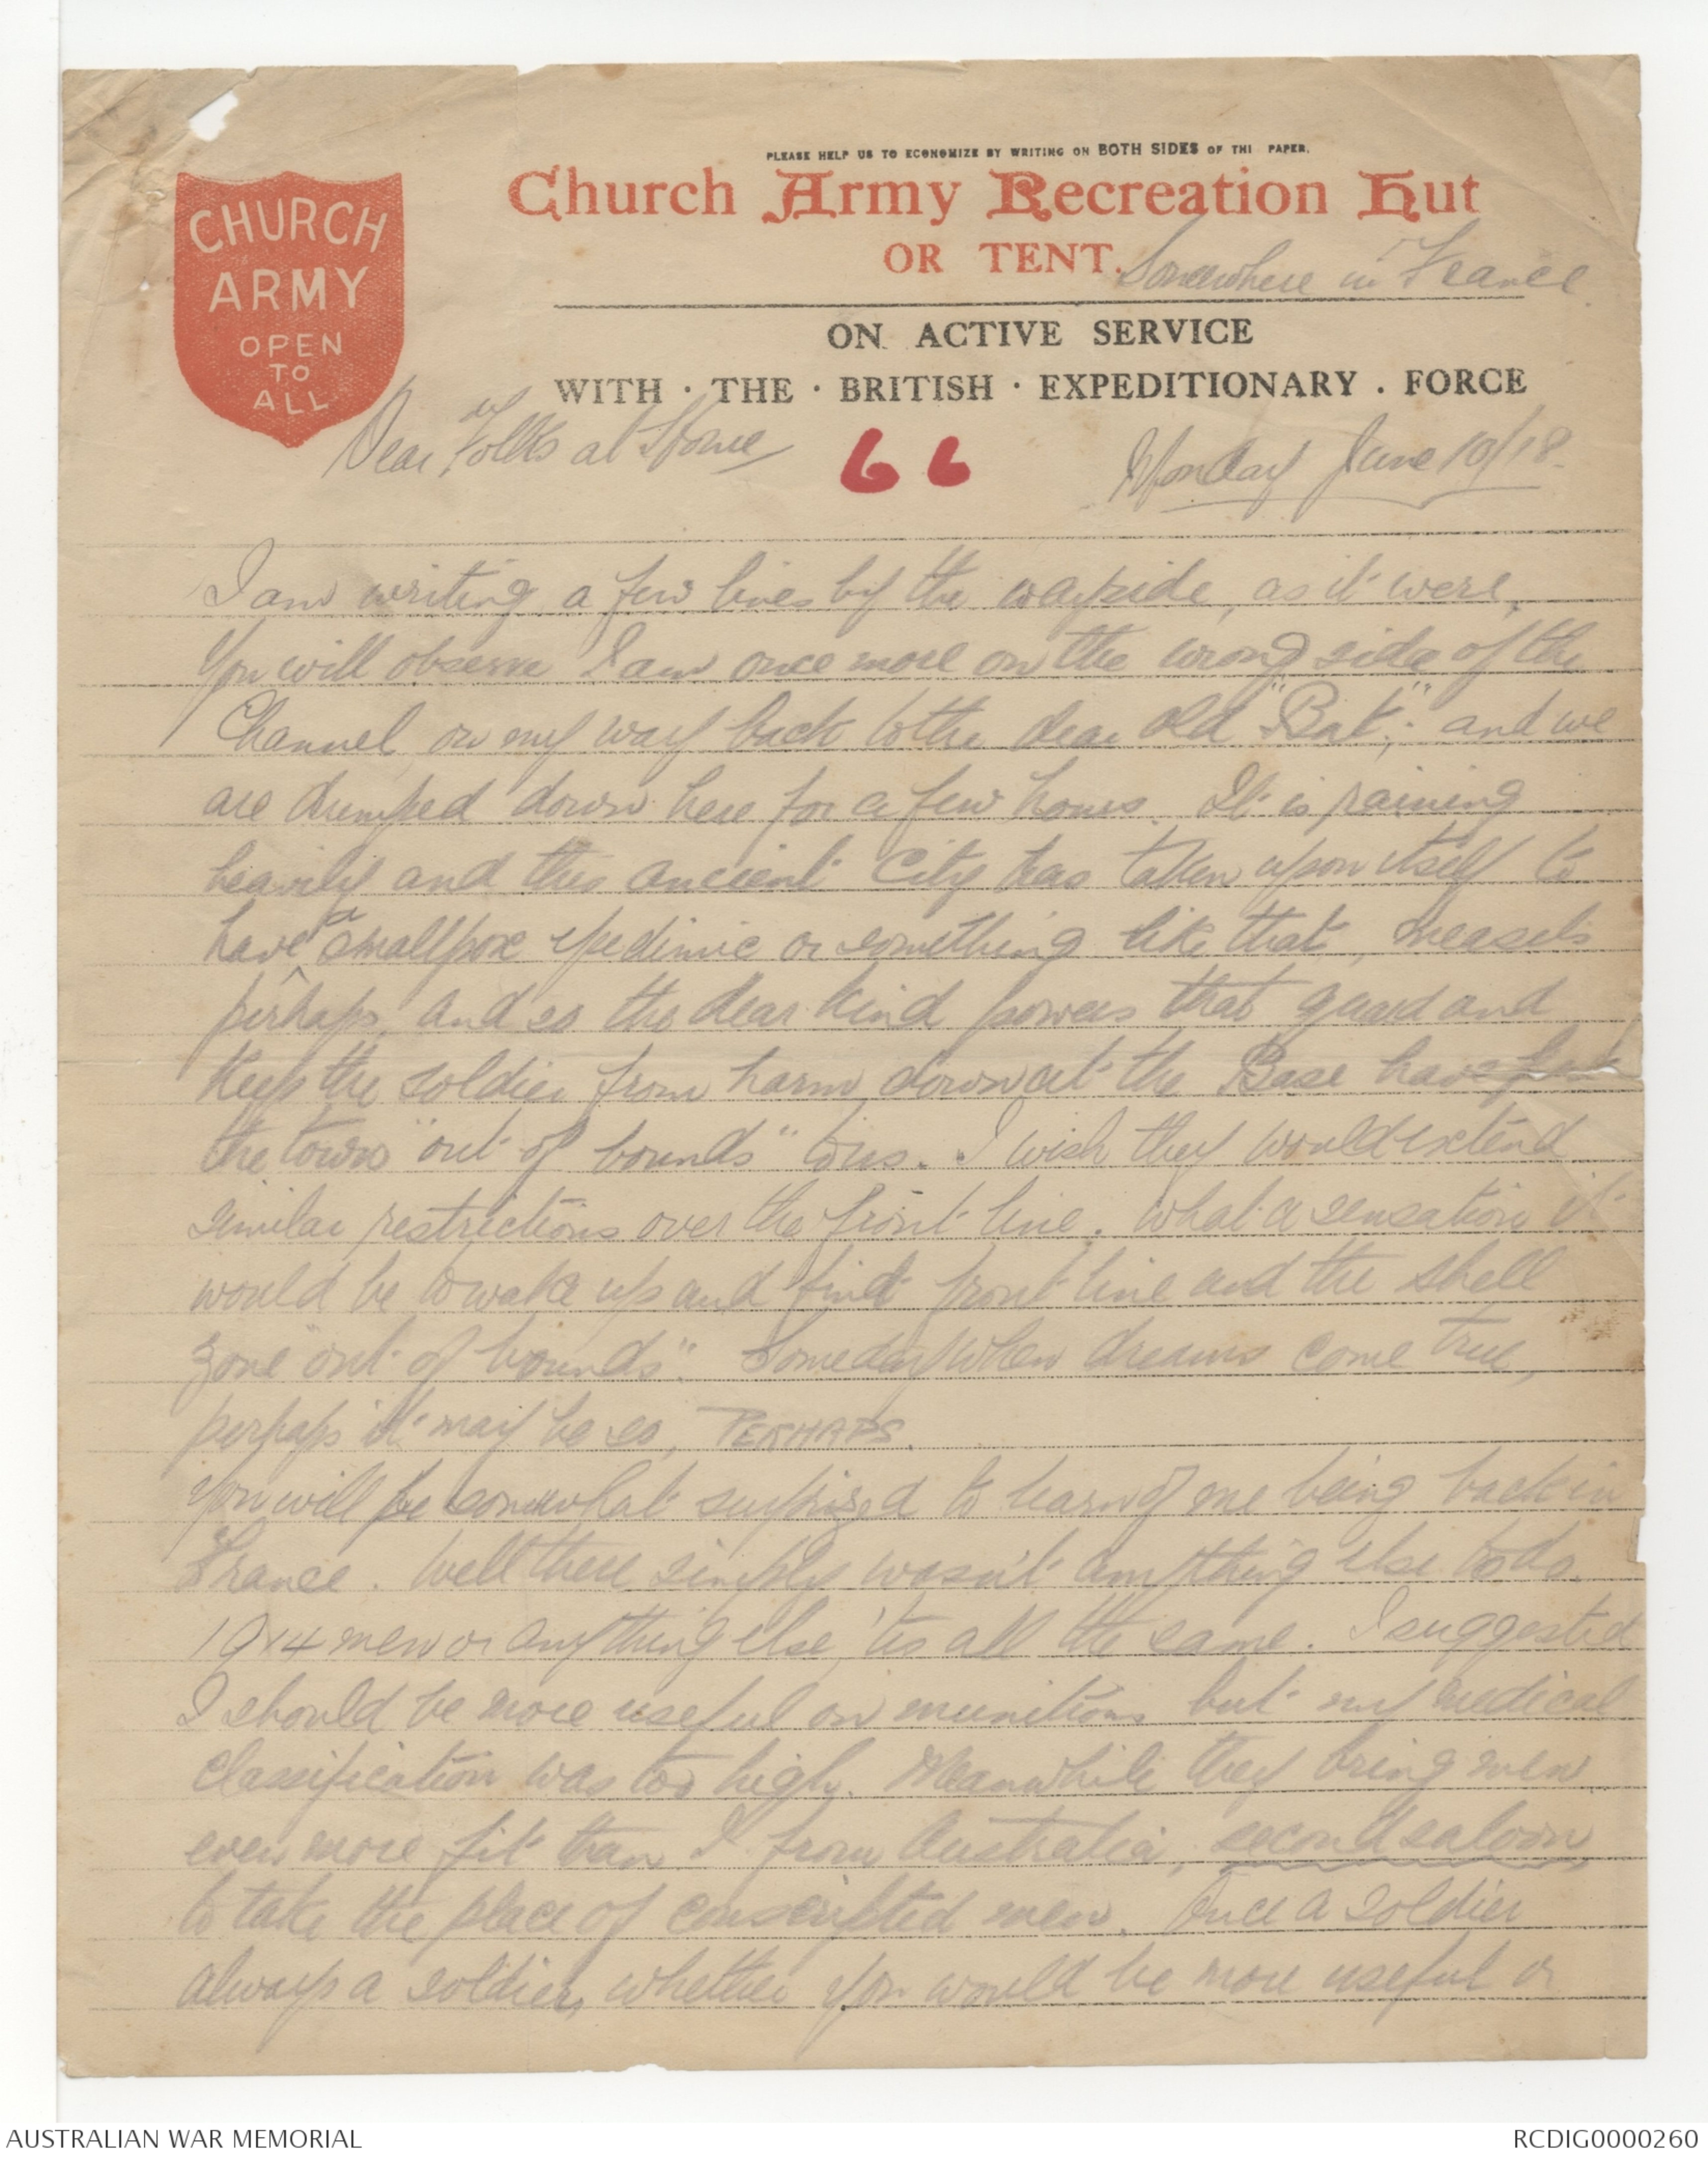 PLEASE HELP US TO ECONOMIZE BY WRITING ON BOTH SIDES OF THI PAPER.
Church Army Recreation Hut
OR TENT.
Somewhere in France.
CHURCH
ARMY
OPEN
TO
ALL
ON ACTIVE SERVICE
WITH · THE · BRITISH · EXPEDITIONARY . FORCE
Dear Folks at Home
66
Monday June 10/18.
I am writing a few lines by the wayside, as it were.
You will observe I am once more on the wrong side of the
Channel, on my way back to the dear old "Bat"; and we
are dumped down here for a few hours. It is raining
heavily and this ancient City has taken upon itself to
have a smallpox epedimic or something like that, measels
perhaps, and so the dear kind powers that guard and
keep the soldier from harm down at the Base have
the town "out of bounds" to us. I wish they would extend
similar restrictions over the front line. What a sensation it
would be to wake up and find front line and the shell
zone "out of bounds". Someday when dreams come true,
perhaps it may be so, PERHAPS.
You will be somewhat surprized to hear of me being back in
France. Well there simply wasn't anything else to do.
1914 men or anything else, 'tis all the same. I suggested
I should be more useful on munitions but my medical
classification was too high. Meanwhile they bring men
even more fit than I from Australia, second saloon
to take the place of conscripted men. Once a soldier
always a soldier, whether you would be more useful or
AUSTRALIAN WAR MEMORIAL
RCDIG0000260